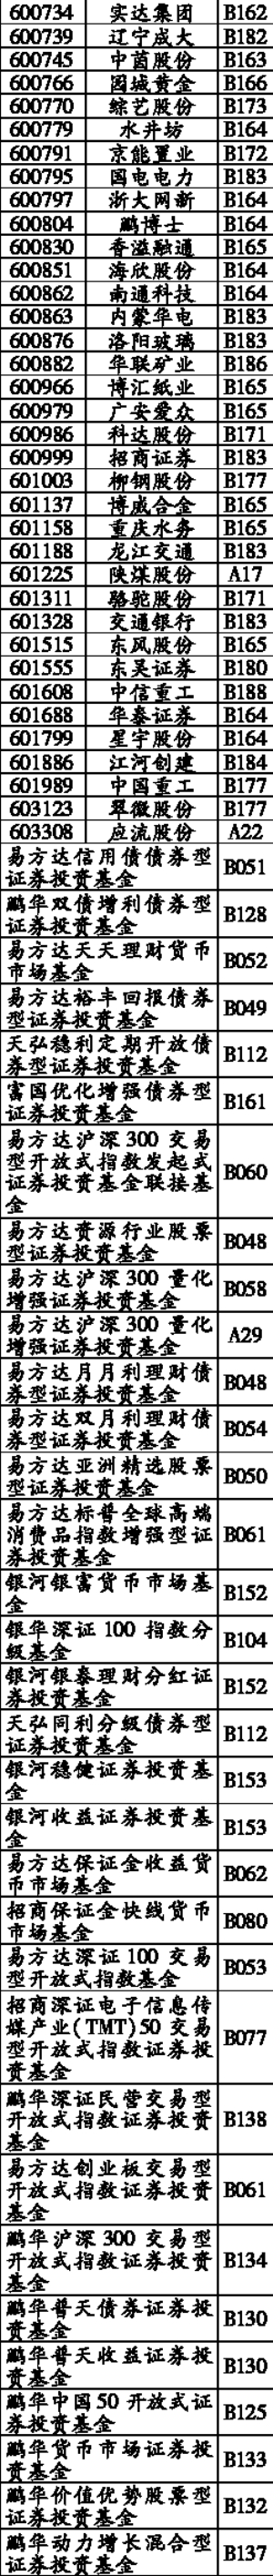 600734 实达集团 B162
600739 辽宁成大 B182
600745 中茵股份 B163
600766 园城黄金 B166
600770 综艺股份 B173
600779 水井坊 B164
600791 京能置业 B172
600795 国电电力 B183
600797 浙大网新 B164
600804 鹏博士 B164
600830 香溢融通 B165
600851 海欣股份 B164
600862 南通科技 B164
600863 内蒙华电 B183
600876 洛阳玻璃 B183
600882 华联矿业 B186
600966 博汇纸业 B165
600979 广安爱众 B165
600986 科达股份 B171
600999 招商证券 B183
601003 柳钢股份 B177
601137 博威合金 B165
601158 重庆水务 B165
601188 龙江交通 B183
601225 陕煤股份 A17
601311 骆驼股份 B171
601328 交通银行 B183
601515 东风股份 B165
601555 东吴证券 B180
601608 中信重工 B188
601688 华泰证券 B164
601799 星宇股份 B164
601886 江河创建 B184
601989 中国重工 B177
603123 翠微股份 B177
603308 应流股份 A22
易方达信用债债券型
证券投资基金 B051
鹏华双债增利债券型
证券投资基金 B128
易方达天天理财货币
市场基金 B052
易方达裕丰回报债券
型证券投资基金 B049
天弘稳利定期开放债
券型证券投资基金 B112
富国优化增强债券型
证券投资基金 B161
易方达沪深300 交易
型开放式指数发起式
证券投资基金联接基
金 B060
易方达资源行业股票
型证券投资基金 B048
易方达沪深300 量化
增强证券投资基金 B058
易方达沪深300 量化
增强证券投资基金 A29
易方达月月利理财债
券型证券投资基金 B048
易方达双月利理财债
券型证券投资基金 B054
易方达亚洲精选股票
型证券投资基金 B050
易方达标普全球高端
消费品指数增强型证
券投资基金 B061
银河银富货币市场基
金 B152
银华深证100 指数分
级基金 B104
银河银泰理财分红证
券投资基金 B152
天弘同利分级债券型
证券投资基金 B112
银河稳健证券投资基
金 B153
银河收益证券投资基
金 B153
易方达保证金收益货
币市场基金 B062
招商保证金快线货币
市场基金 B080
易方达深证100 交易
型开放式指数基金 B053
招商深证电子信息传
媒产业(TMT)50 交易
型开放式指数证券投
资基金 B077
鹏华深证民营交易型
开放式指数证券投资
基金 B138
易方达创业板交易型
开放式指数证券投资
基金 B061
鹏华沪深300 交易型
开放式指数证券投资
基金 B134
鹏华普天债券证券投
资基金 B130
鹏华普天收益证券投
资基金 B130
鹏华中国50 开放式证
券投资基金 B125
鹏华货币市场证券投
资基金 B133
鹏华价值优势股票型
证券投资基金 B132
鹏华动力增长混合型
证券投资基金 B137